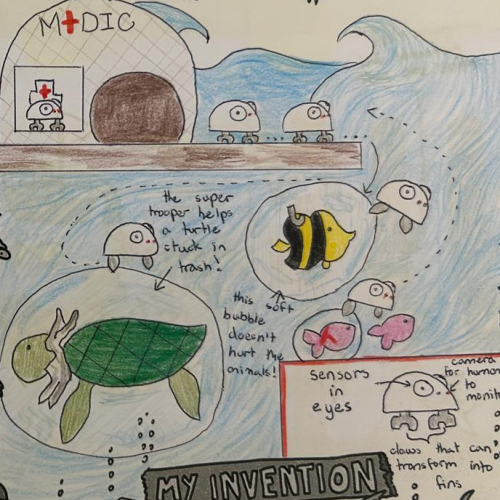 M+DIC
the super
trooper helps
a turtle
stuck in
trash!
this soft
bubble
doesn't
hurt the
animals!
sensors
in
eyes
camera
for human
to
monito
claws that can
transform into
fins
MY INVENTION